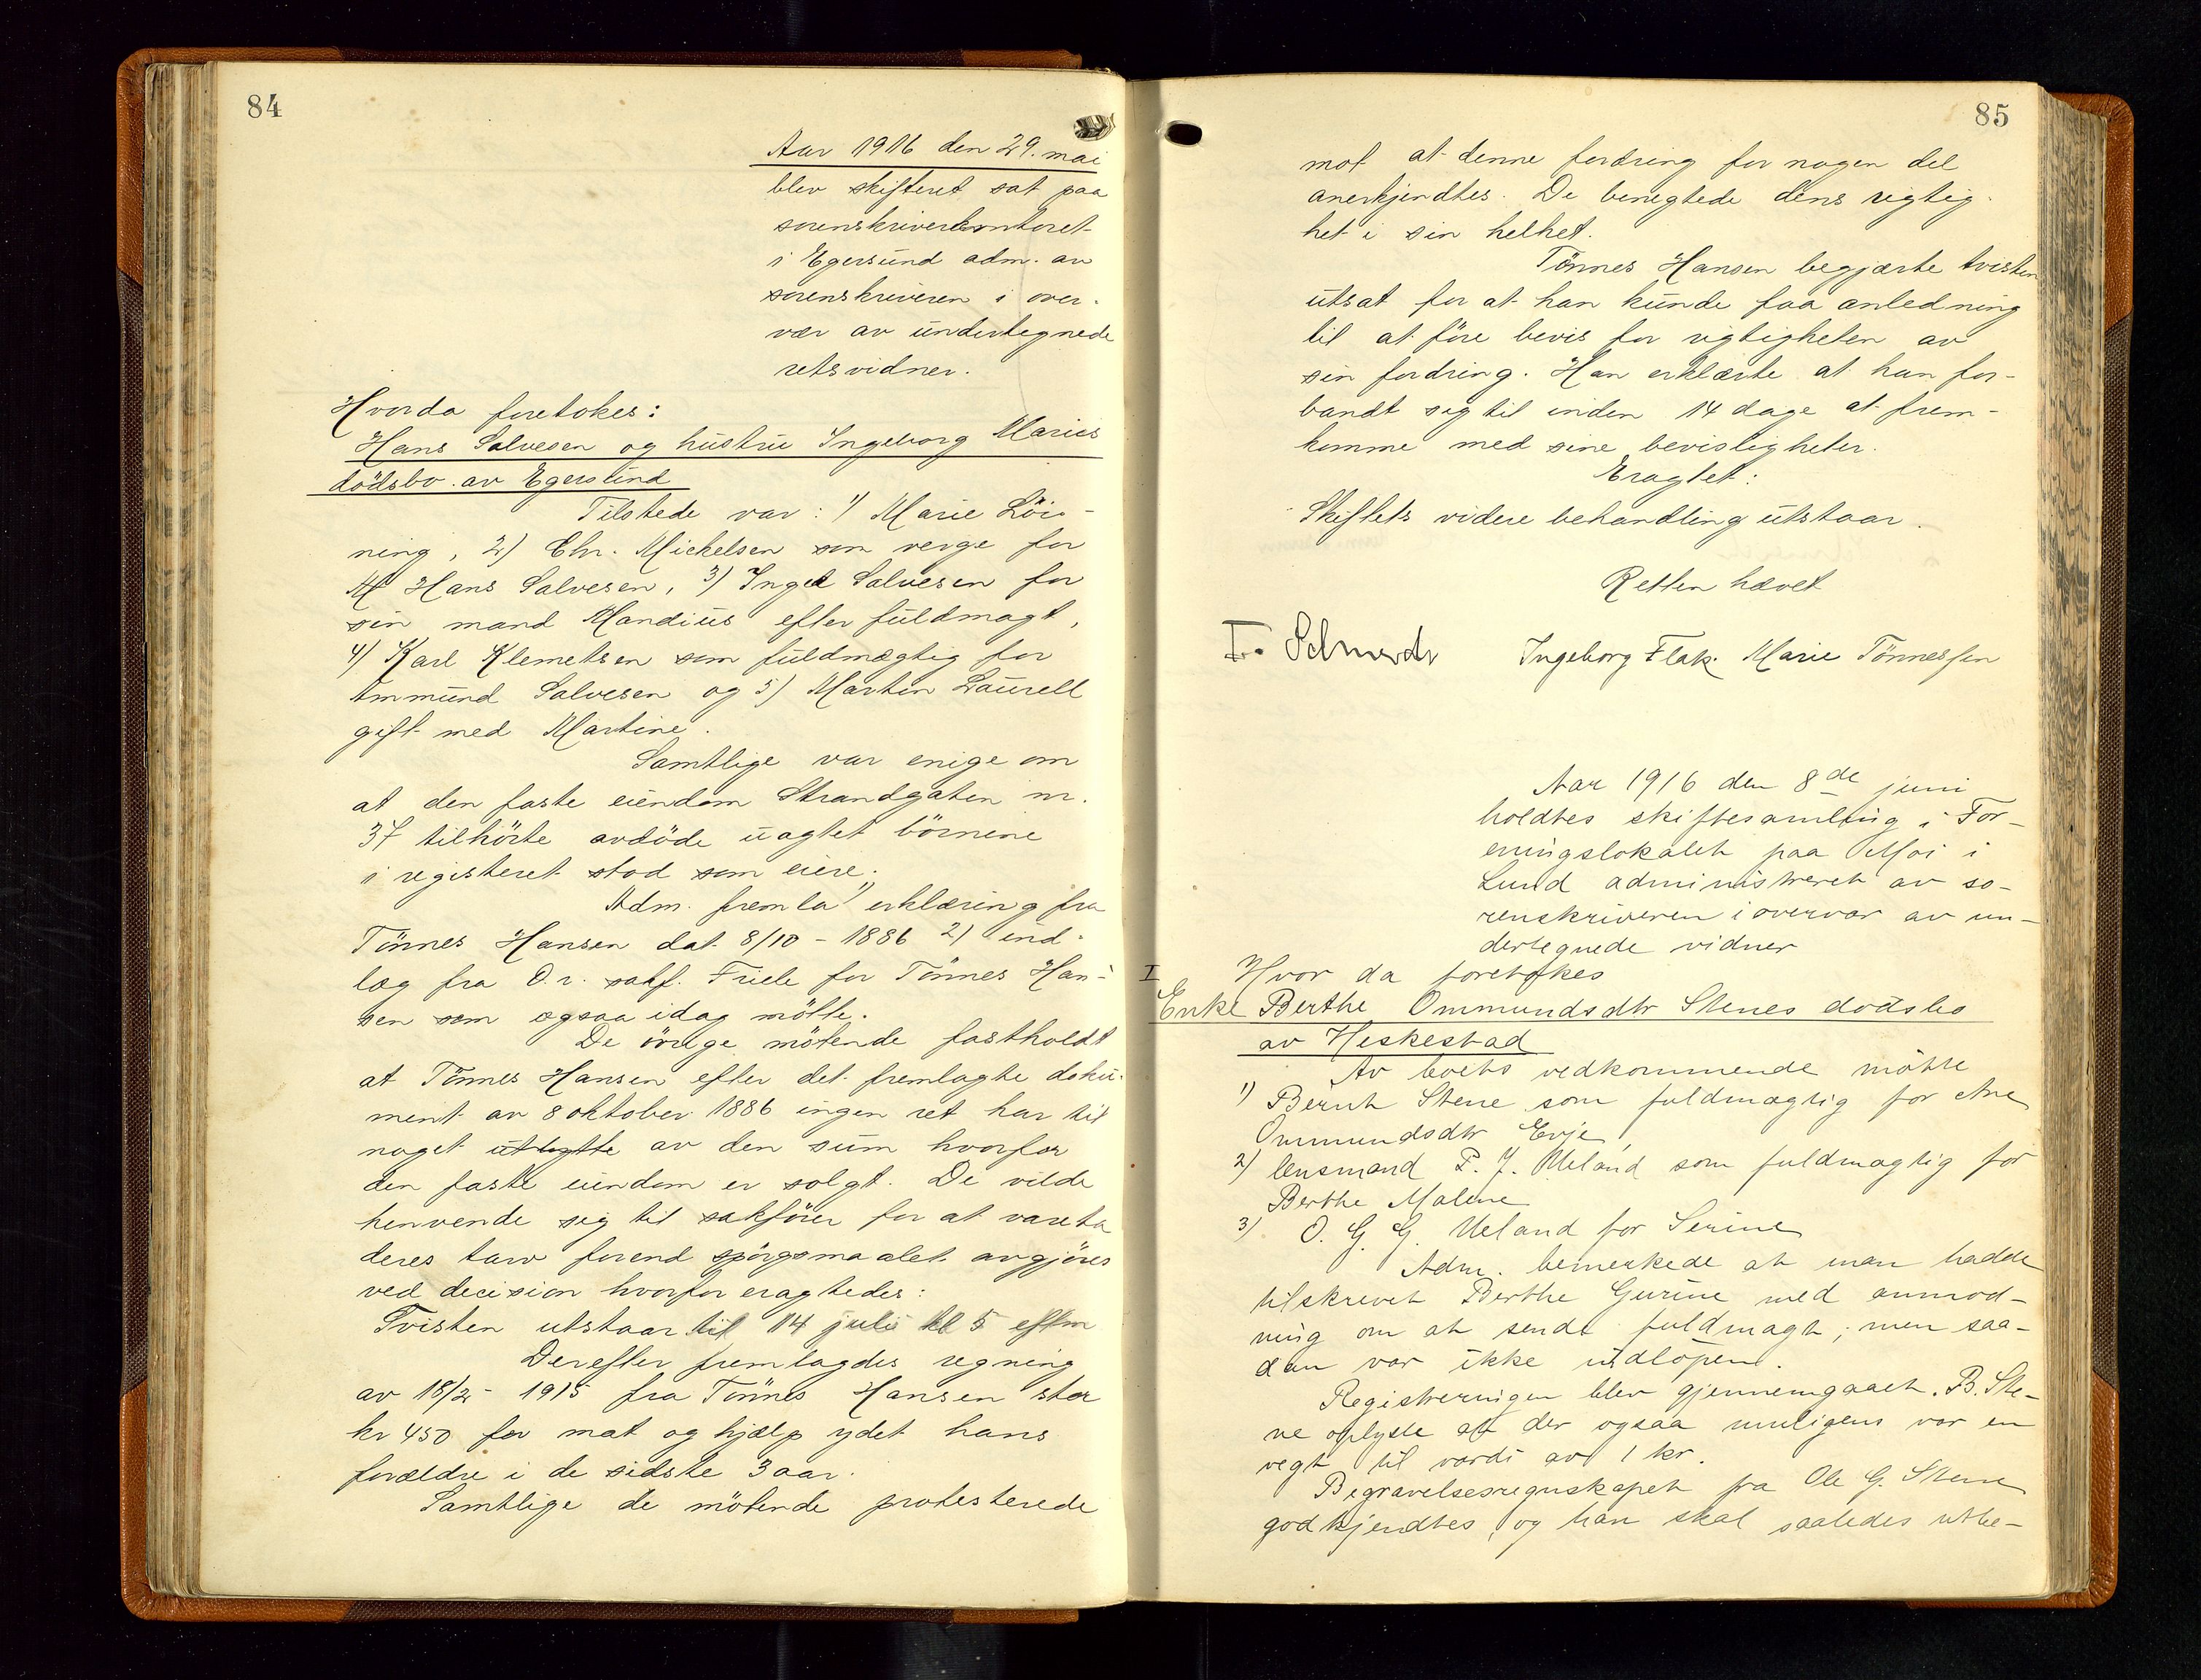 84
Aar 1916 den 29. mai
blev skifteret sat paa
sorenskriverkontoret
i Egersund adm. av
sorenskriveren i over-
vær av undertegnede
retsvidner.
Hvorda foretokes:
Hans Salvesen og hustru Ingeborg Maries
dödsbo av Egersund
Tilstede var: 1) Marie Löi-
ning, 2) Chr. Michelsen som verge for
Hans Salvesen, 3) Salvesen for
sin mand Mandius efter fuldmagt,
4) Karl Klemetsen som fuldmægtig for
Ammund Salvesen og 5) Martin Laurell
gift med Martine.
Samtlige var enige om
at den faste eiendom Strandgaten nr.
37 tilhörte avdöde uagtet börnene
i registeret stod som eiere.
Adm. fremla 1) erklæring fra
Tönnes Hansen dat 8/10 - 1886 2) ind-
læg fra O.r. sakf. Friele for Tönnes Han-
sen som ogsaa idag mötte.
De övrige mötende fastholdt
at Tönnes Hansen efter det fremlagte doku-
ment av 8 oktober 1886 ingen ret har til
noget utbytte av den sum hvorfor
den faste eiendom er solgt. De vilde
henvende sig til sakförer for at vareta
deres tarv forend spörgsmaalet avgjöres
ved decision hvorfor eragtedes:
Tvisten utstaar til 14 juli kl 5 eftm
Derefter fremlagdes regning
av 18/2 - 1915 fra Tönnes Hansen stor
kr 450 for mat og hjælp ydet hans
forældre i de sidste 3 aar.
Samtlige de mötende protesterede
85
mot at denne fordring for nogen del
anerkjendtes. De benegtede dens rigtig-
het i sin helhet.
Tönnes Hansen begjærte tvisten
utsat for at han kunde faa anledning
til at före bevis for rigtigheten av
sin fordring. Han erklærte at han for-
bandt seg til inden 14 dage at frem-
komme med sine bevisligheter.
Eragtet:
Skiftets videre behandling utstaar.
Retten hævet
Ingeborg Flak. Marie Tönnessen
Aar 1916 den 8de juni
holdtes skiftesamling i For-
eningslokalet paa Moi i
Lund administreret av so-
renskriveren i overvær av un-
dertegnede vidner
I Hvor da foretokes
Enke Berthe Ommundsdtr Stenes dødsbo
av Heskestad
Av boets vedkommende mötte
1) Bernt Stene som fuldmægtig for Ane
Ommundsdtr Evje,
2) lensmand P. J. Ueland som fuldmægtig for
Berthe Malene
3) O. G. G. Ueland for Serine
Adm. bemerkede at man hadde
tilskrevet Berthe Gurine med anmod-
ning om at sende fuldmagt; men saa-
dan var ikke indløpen.
Registreringen blev gjennemgaaet. B. Ste-
ne oplyste at der ogsaa muligens var en
vegt til værdi av 1 kr.
Begravelsesregnskapet fra Ole G. Stene
godkjendtes, og han skal saaledes utbe-